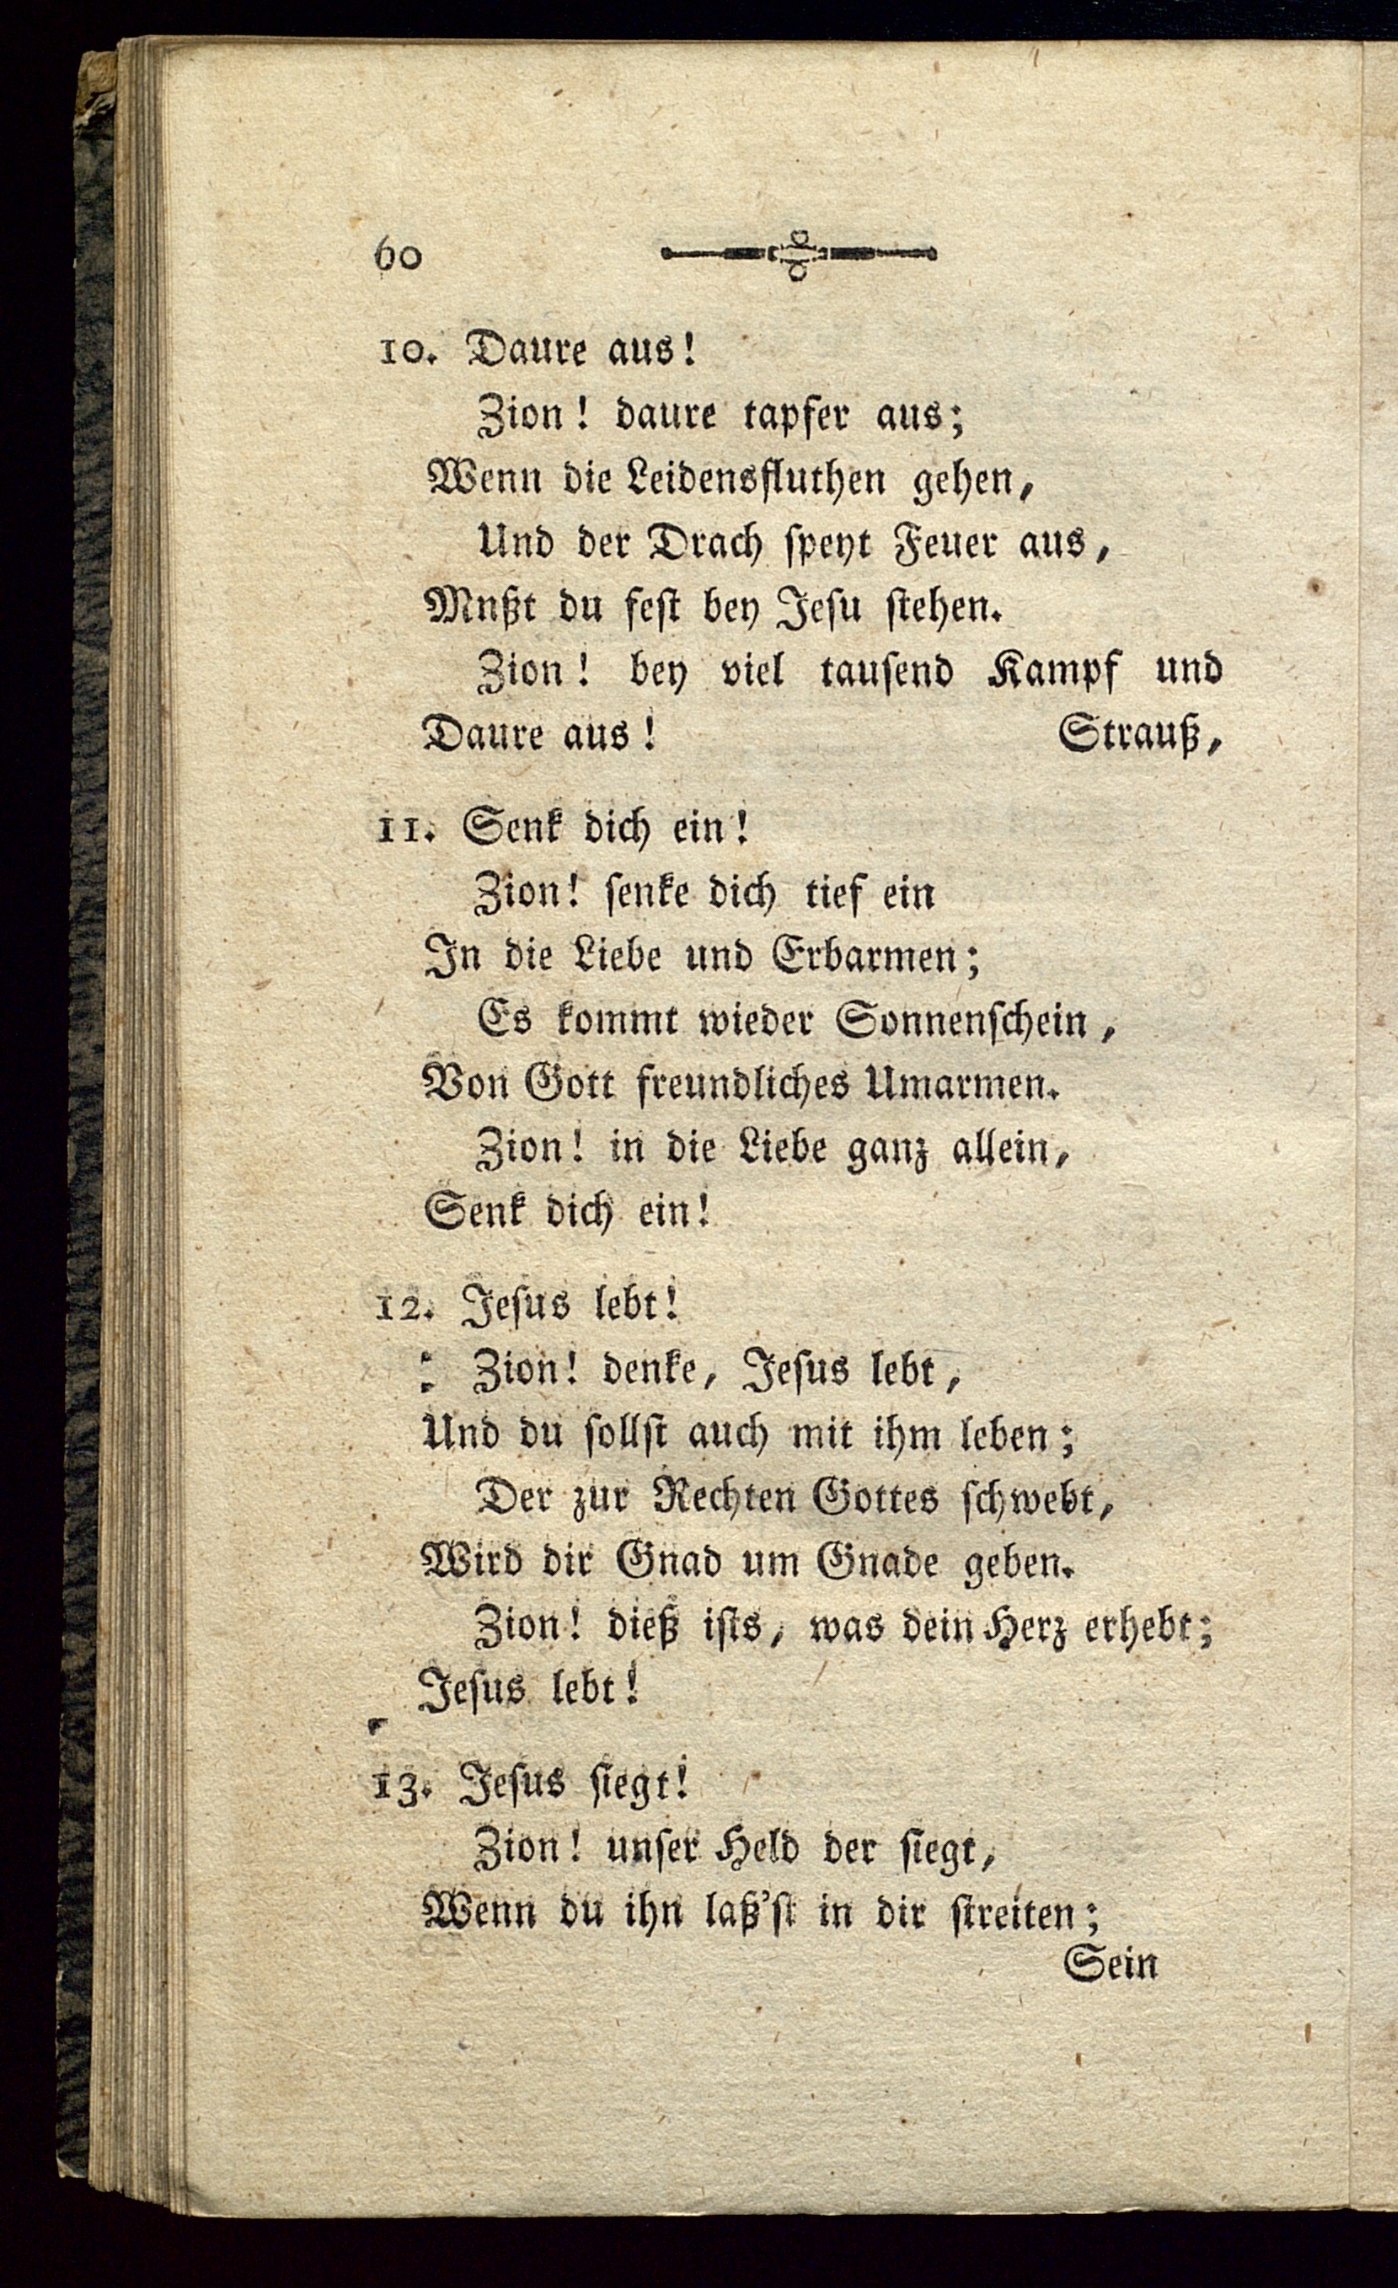 60
10. Daure aus!
Zion! daure tapfer aus;
Wenn die Leidensfluthen gehen,
Und der Drach speyt Feuer aus,
Mnßt du fest bey Jesu stehen.
Zion! bey viel tausend Kampf und
Daure aus! Strauß,
11. Senk dich ein!
Zion! senke dich tief ein
In die Liebe und Erbarmen;
Es kommt wieder Sonnenschein,
Von Gott freundliches Umarmen.
Zion! in die Liebe ganz allein,
Senk dich ein!
12. Jesus lebt!
Zion! denke, Jesus lebt,
Und du sollst auch mit ihm leben;
Der zur Rechten Gottes schwebt,
Wird dir Gnad um Gnade geben.
Zion! dieß ists, was dein Herz erhebt;
Jesus lebt!
13. Jesus siegt!
Zion! unser Held der siegt,
Wenn du ihn laß'st in dir streiten;
Sein